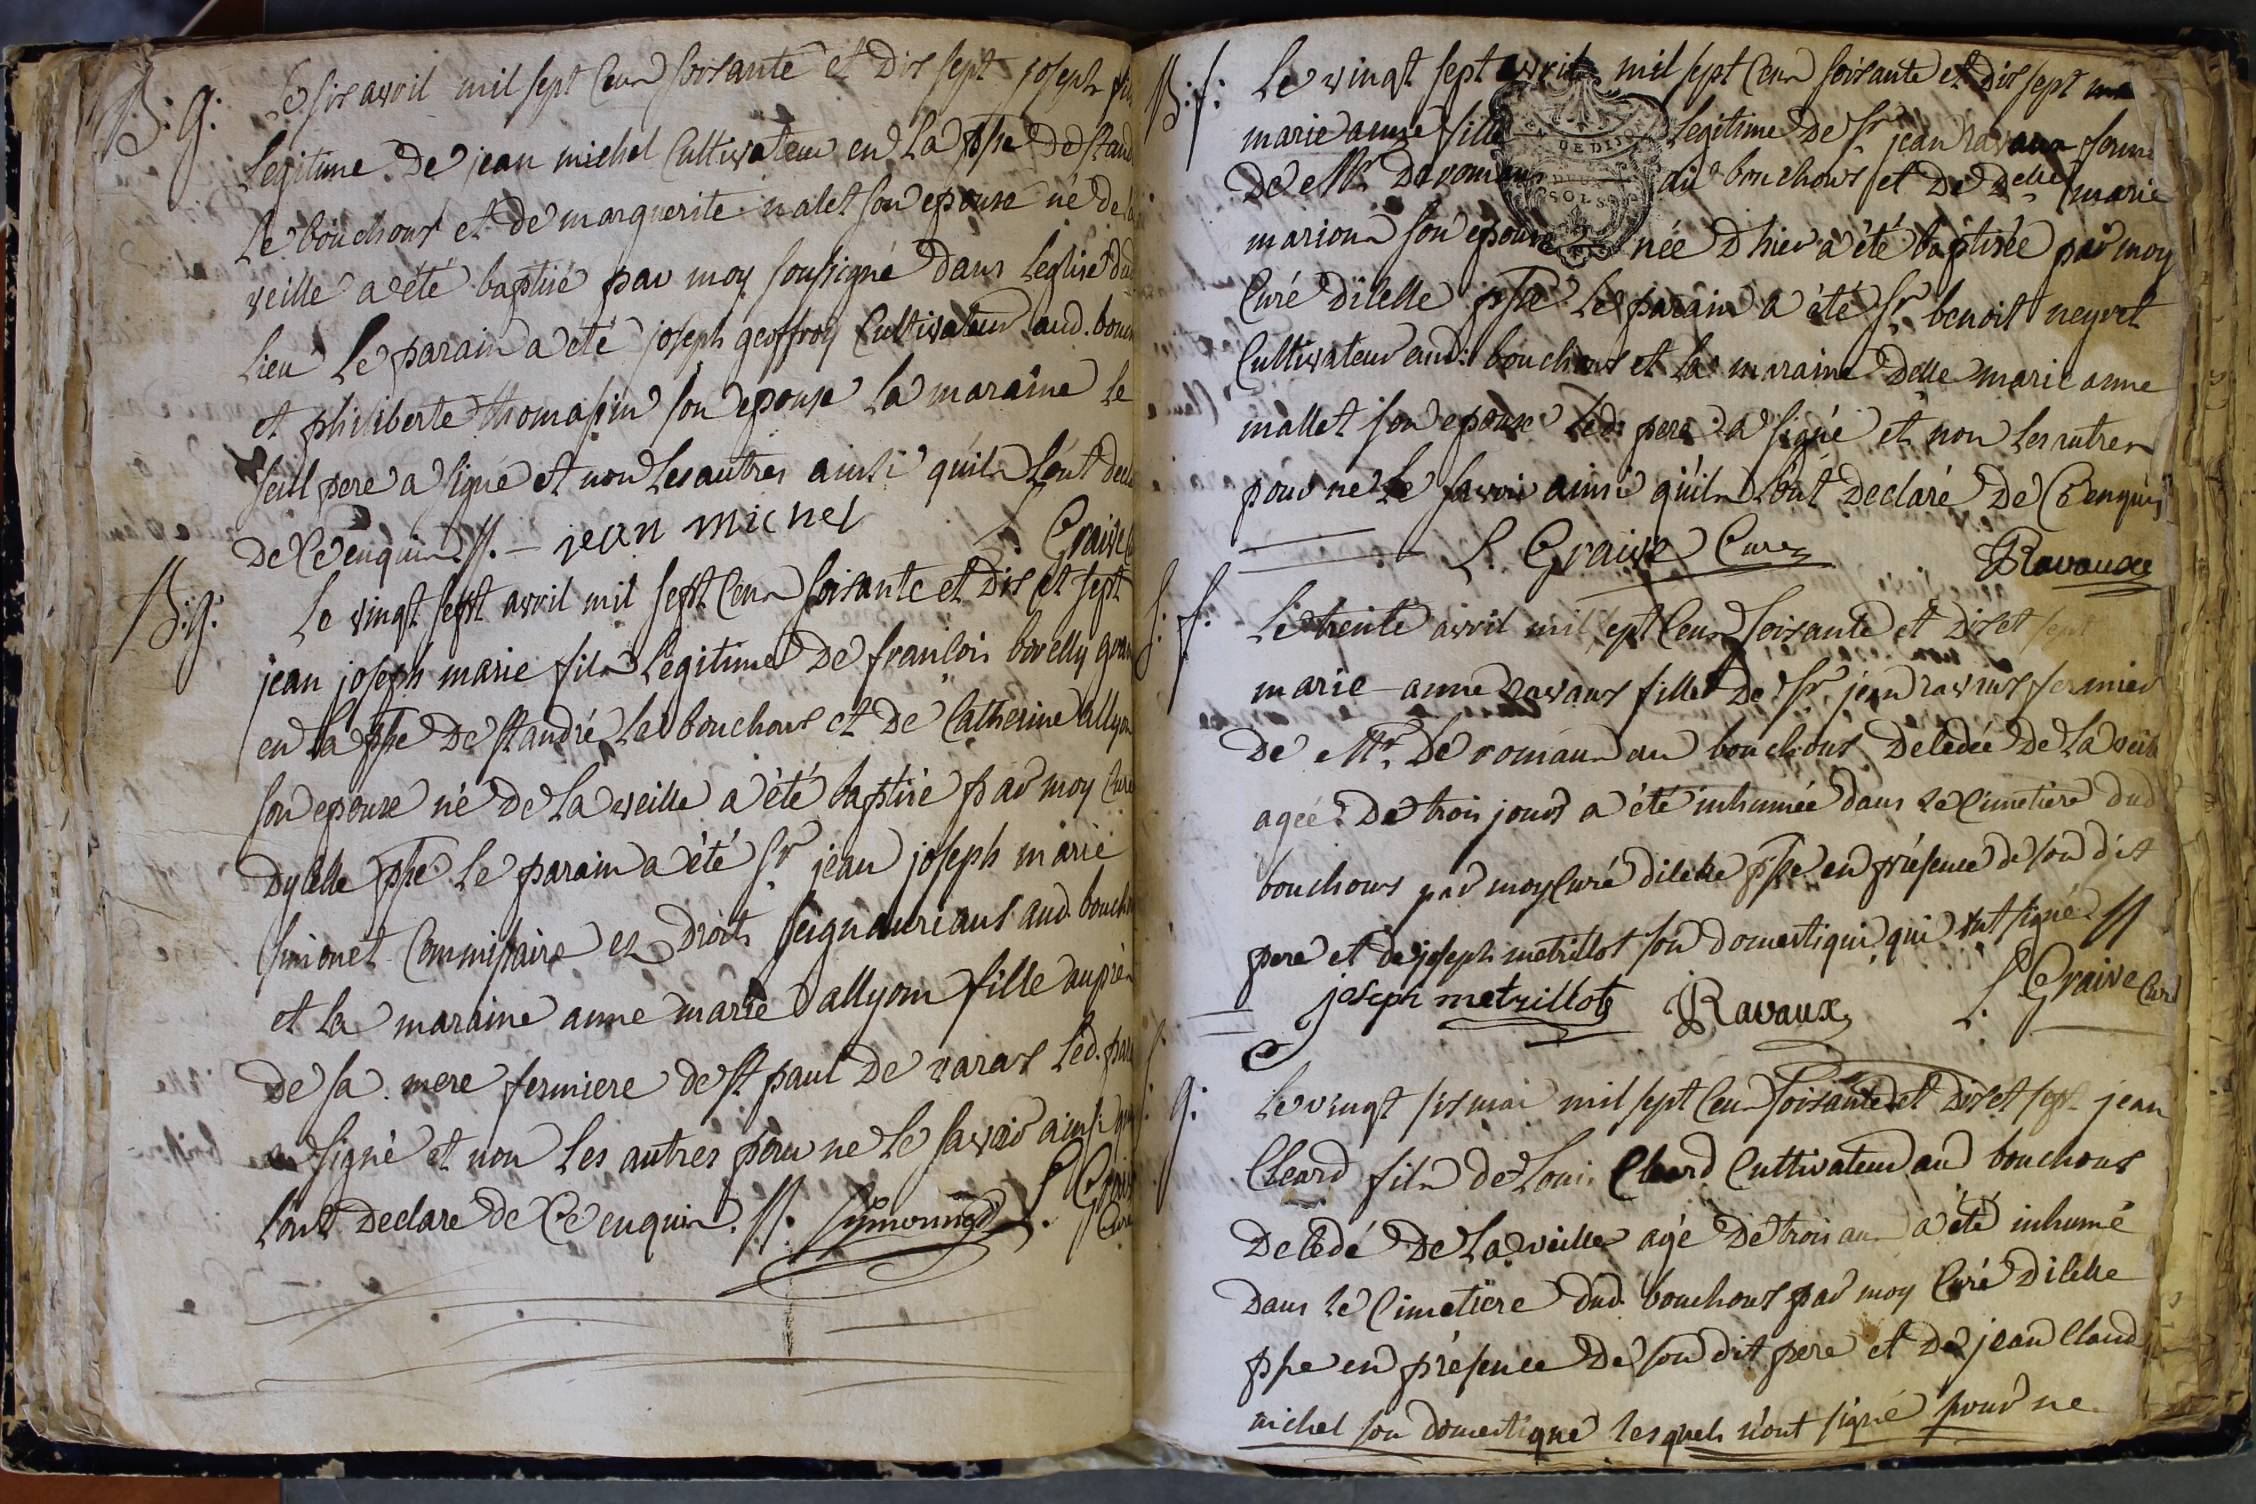 B: g:
Le six avril mil sept cens soixante et dix sept joseph fils
legitime de jean michel cultivateur en la psse de st andré
le bouchoux et de marguerite nalet son epouse né de la
veille a été baptisé par moy soussigné dans l'eglise dud
lieu le parain a été joseph geoffroy cultivateur aud. bouch
et philiberte thomasin son epouse la maraine le
seul pere a signé et non les autres ainsi qu'ils l'ont decl
de ce enquis //. - jean michel L. Graive
B: g:
Le vingt sept avril mil sept cens soixante et dix et sept
jean joseph marie fils legitime de francois
en la psse de st andré le bouchoux et de catherine allyon
son epouse né de la veille a été baptisé par moy curé
dycelle psse le parain a été sr jean joseph marie
simonet commissaire es droits seigneuriaux aud. bouch
et la maraine anne marie allyon fille auprès
de sa mere fermiere de st paul de varax led. parain
a signé et non les autres pour ne le savoir ainsi qu
l'ont declaré de ce enquis. //. L. Graive
curé
B: f:
Le vingt sept avril mil sept cens soixante et dix sept
marie anne fille legitime de sr jean ravaux fermier
de Mr. de romans au bouchoux et de delle marie
marion son epouse née d'hier a été baptisée par moy
curé dicelle psse le parain a été sr benoit neyret
cultivateur aud: bouchoux et la maraine delle marie anne
mallet son epouse led: pere a signé et non les autres
pour ne le savoir ainsi qu'ils l'ont declaré de ce enquis
L. Graive curé Ravaux
S: f:
Le trente avril mil sept cens soixante et dix et sept
marie anne ravaux fille de sr jean ravaux fermier
de Mr. de romans au bouchoux decedée de la veille
agée de trois jours a été inhumée dans le cimetiere dud
bouchoux par moy curé dicelle psse en présence de son dit
pere et de joseph metrillot son domestique qui ont signé //
joseph metrillot Ravaux L. Graive curé
S: g:
Le vingt six mai mil sept cens soixante et dix et sept jean
Cleard fils de Louis Cleard cultivateur au bouchoux
decedé de la veille agé de trois ans a été inhumé
dans le cimetiere dud. bouchoux par moy curé dicelle
psse en présence de son dit pere et de jean claude
michel son domestique lesquels n'ont signé pour ne
EN DE DIJON
DEUX
SOLS